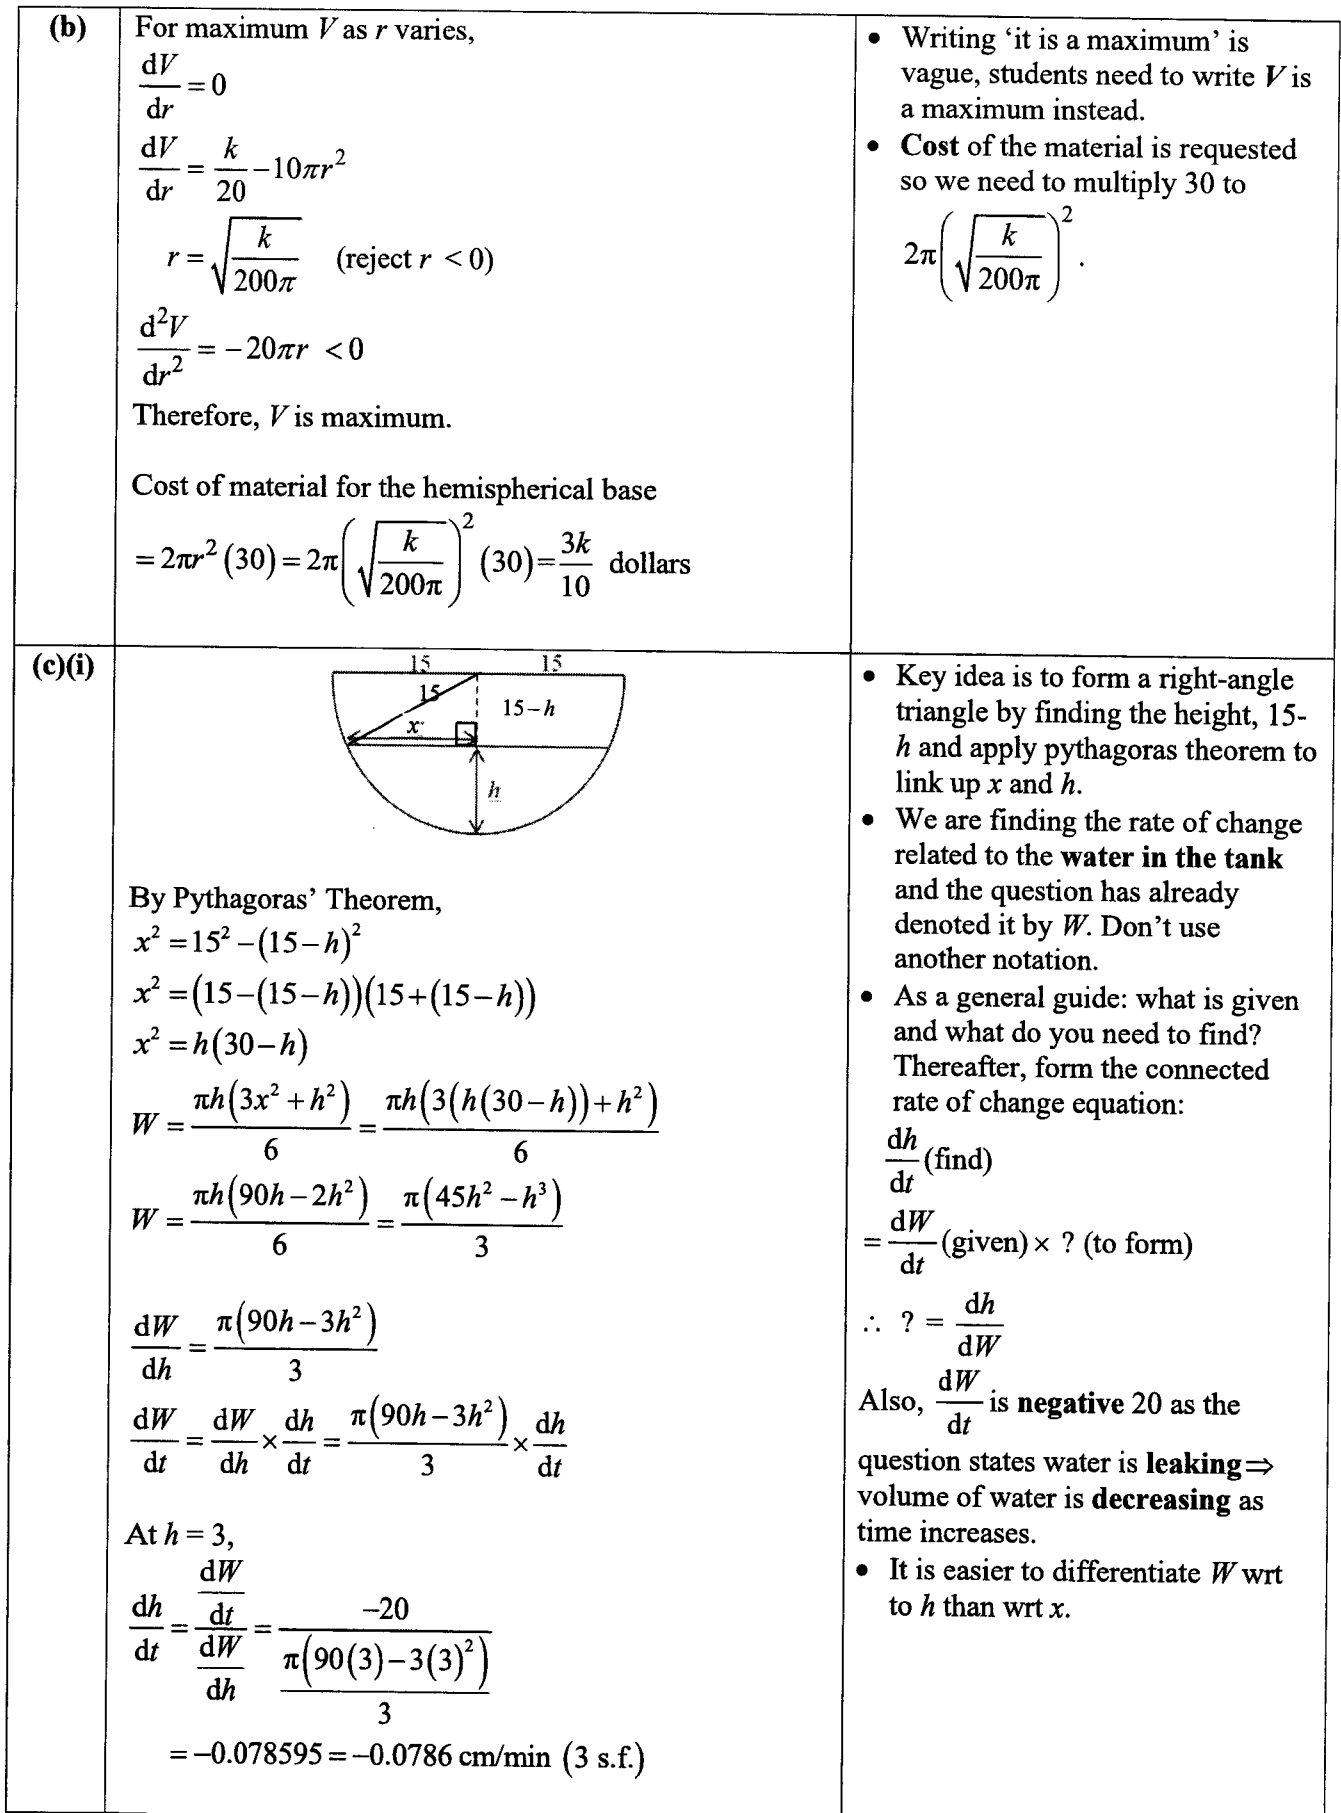 (b)
For maximum V as r varies,
dV/dr = 0
dV/dr = k/20 − 10πr²
r = √(k/200π) (reject r < 0)
d²V/dr² = −20πr < 0
Therefore, V is maximum.
Cost of material for the hemispherical base
= 2πr² (30) = 2π(√(k/200π))² (30) = 3k/10 dollars
• Writing ‘it is a maximum’ is
vague, students need to write V is
a maximum instead.
• Cost of the material is requested
so we need to multiply 30 to
2π(√(k/200π))² .
(c)(i)
15 15
15
15 − h
x
h
By Pythagoras’ Theorem,
x² = 15² − (15 − h)²
x² = (15 − (15 − h))(15 + (15 − h))
x² = h(30 − h)
W = πh(3x² + h²)/6 = πh(3(h(30 − h)) + h²)/6
W = πh(90h − 2h²)/6 = π(45h² − h³)/3
dW/dh = π(90h − 3h²)/3
dW/dt = dW/dh × dh/dt = π(90h − 3h²)/3 × dh/dt
At h = 3,
dh/dt = (dW/dt)/(dW/dh) = −20/(π(90(3) − 3(3)²)/3)
= −0.078595 = −0.0786 cm/min (3 s.f.)
• Key idea is to form a right-angle
triangle by finding the height, 15-
h and apply pythagoras theorem to
link up x and h.
• We are finding the rate of change
related to the water in the tank
and the question has already
denoted it by W. Don’t use
another notation.
• As a general guide: what is given
and what do you need to find?
Thereafter, form the connected
rate of change equation:
dh/dt (find)
= dW/dt (given) × ? (to form)
∴ ? = dh/dW
Also, dW/dt is negative 20 as the
question states water is leaking⇒
volume of water is decreasing as
time increases.
• It is easier to differentiate W wrt
to h than wrt x.